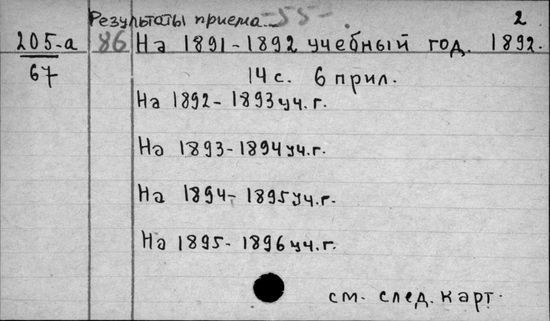 Результаты приема -55- 2
205-а 86 На 1891-1892 учебный год. 1892.
67 14 с. 6 прил.
На 1892-1893 уч. г.
На 1893-1894 уч. г.
На 1894-1895 уч. г.
На 1895-1896 уч. г.
см. след. карт.